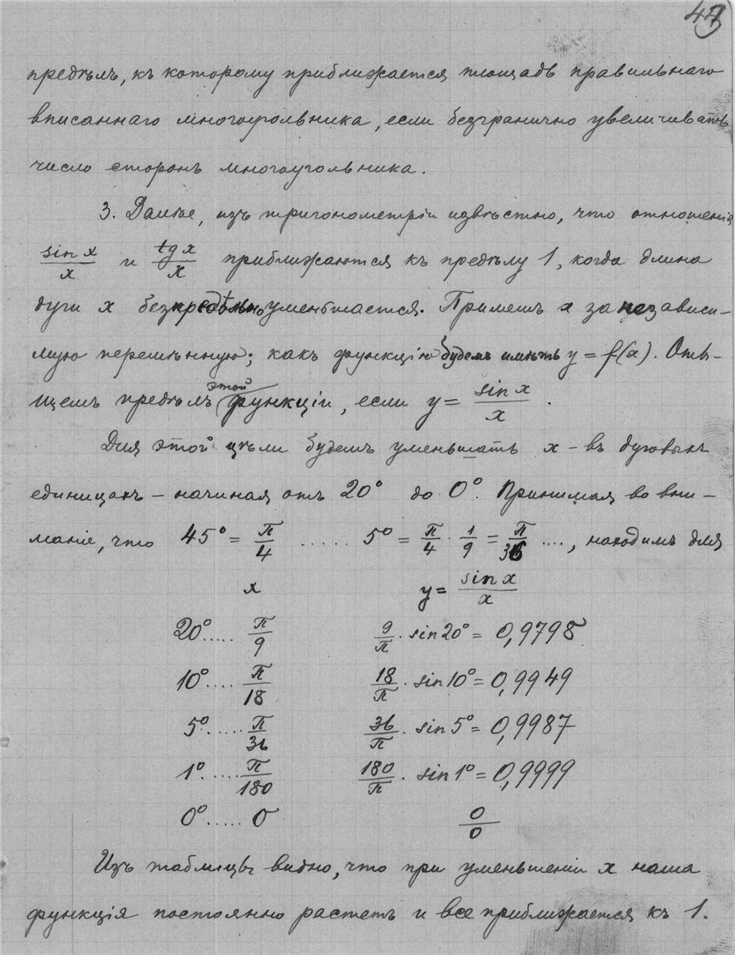 47
предѣлъ, къ которому приближается площадь правильнаго
вписаннаго многоугольника, если безгранично увеличивать
число сторонъ многоугольника.
3. Далѣе, изъ тригонометріи извѣстно, что отношенія
sin x / x и tg x / x приближаются къ предѣлу 1, когда длина
дуги x безпредѣльно уменьшается. Примемъ x за независи-
мую перемѣнную; какъ функцію будемъ имѣть y = f(x). Оты-
щемъ предѣлъ этой функціи, если y = sin x / x.
Для этой цѣли будемъ уменьшать x – въ дуговыхъ
единицахъ – начиная отъ 20° до 0°. Принимая во вни-
маніе, что 45° = π/4 ..... 5° = π/4 · 1/9 = π/36 ...., находимъ для
x y = sin x / x
20° ..... π/9 9/π · sin 20° = 0,9798
10° .... π/18 18/π · sin 10° = 0,9949
5° ..... π/36 36/π · sin 5° = 0,9987
1° ..... π/180 180/π · sin 1° = 0,9999
0° ..... 0 0/0
Изъ таблицы видно, что при уменьшеніи x наша
функція постоянно растетъ и все приближается къ 1.